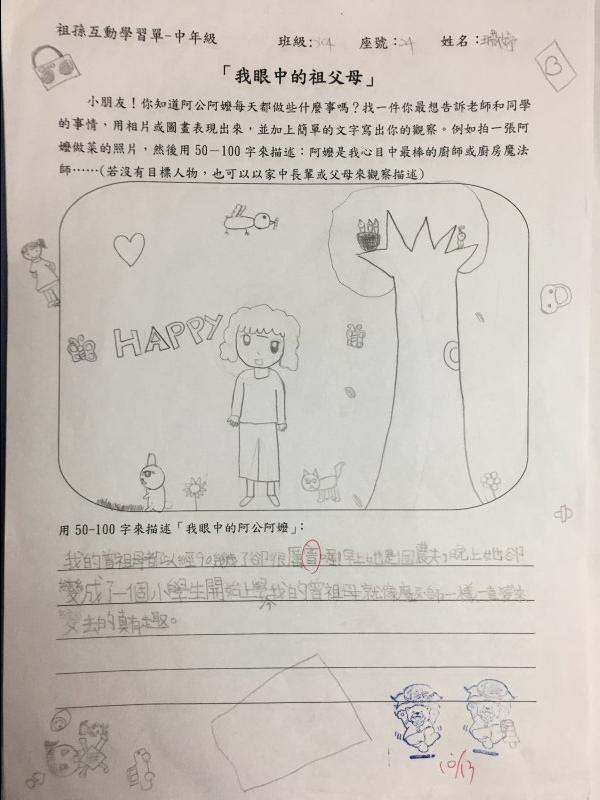 祖孫互動學習單-中年級 班級: 304 座號: 24 姓名:
「我眼中的祖父母」
小朋友！你知道阿公阿嬤每天都做些什麼事嗎？找一件你最想告訴老師和同學
的事情，用相片或圖畫表現出來，並加上簡單的文字寫出你的觀察。例如拍一張阿
嬤做菜的照片，然後用50－100字來描述：阿嬤是我心目中最棒的廚師或廚房魔法
師……(若沒有目標人物，也可以以家中長輩或父母來觀察描述)
HAPPY
用50-100字來描述「我眼中的阿公阿嬤」：
我的曾祖母都以經90幾歲了卻很厲害喔!早上她是個農夫,晚上她卻
變成了一個小學生開始上學,我的曾祖母就像魔術師一樣一直變來
變去的真有趣。
10/13